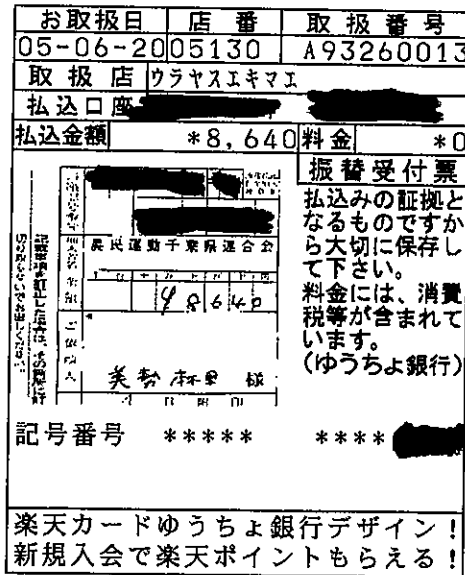 お取扱日 店番 取扱番号
05-06-20 05130 A93260013
取扱店 ウラヤスエキマエ
払込口座
払込金額 *8,640 料金 *0
振替受付票
払込みの証拠と
なるものですか
ら大切に保存し
て下さい。
料金には、消費
税等が含まれて
います。
(ゆうちょ銀行)
農民運動千葉県連合会
8640
様
記号番号 ***** ****
楽天カードゆうちょ銀行デザイン!
新規入会で楽天ポイントもらえる!